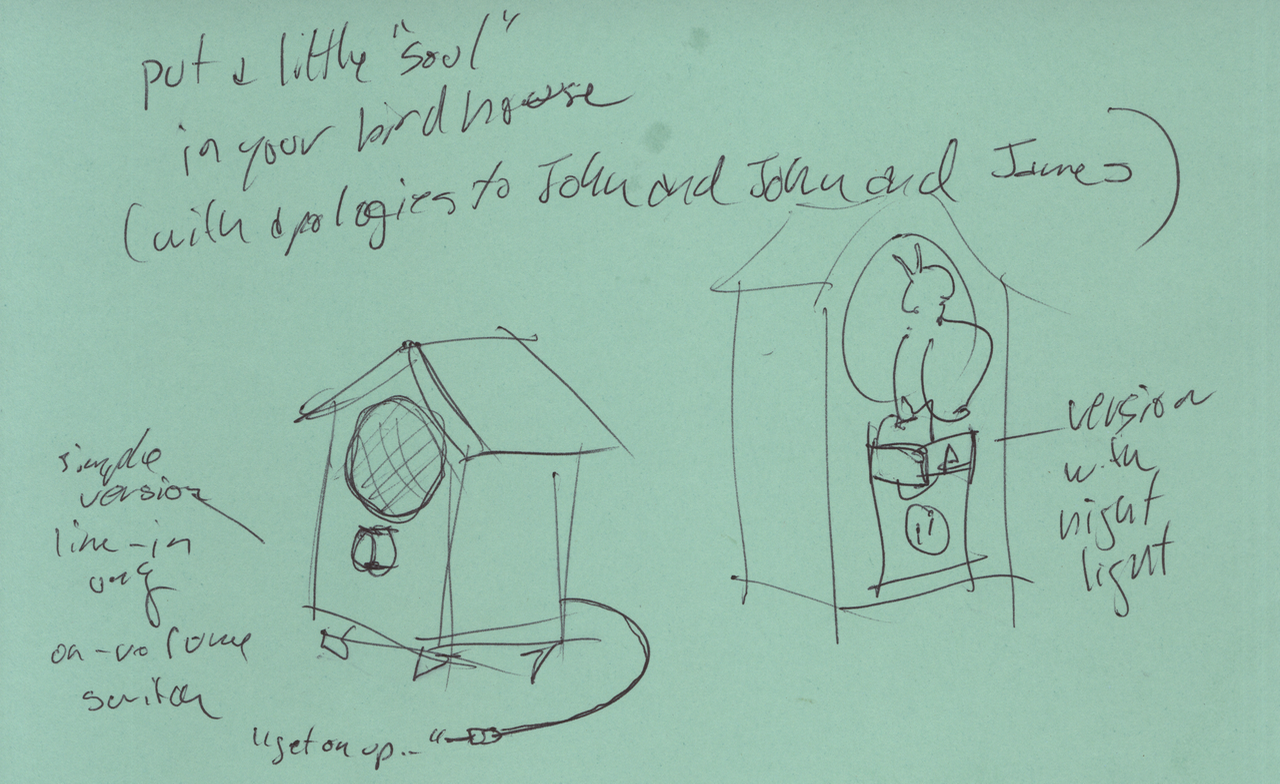 put a little "soul"
in your birdhouse
(with apologies to John and John and James)
simple
version
line-in
only
on-volume
switch
"get on up..."
version
with
night
light